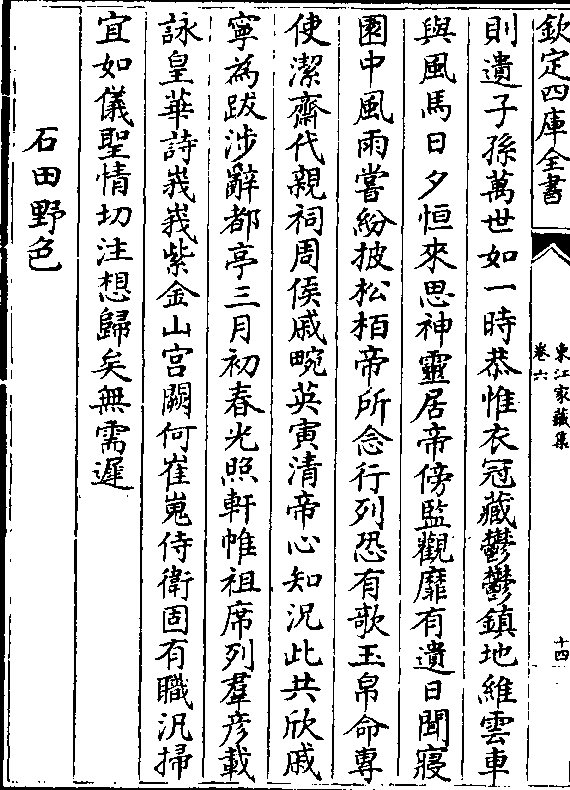 欽定四庫全書
東江家藏集
卷六
十四
則遺子孫萬世如一時恭惟衣冠藏鬱鬱鎮地維雲車
與風馬日夕恒來思神靈居帝傍監觀靡有遺日聞寢
園中風雨嘗紛披松柏帝所念行列恐有歌玉帛命專
使潔齋代親祠周侯戚畹英寅清帝心知況此共欣戚
寧為跋涉辭都亭三月初春光照軒帷祖席列羣彦載
詠皇華詩峩峩紫金山宮闕何崔嵬侍衛固有職汎掃
宜如儀聖情切注想歸矣無需遲
石田野色